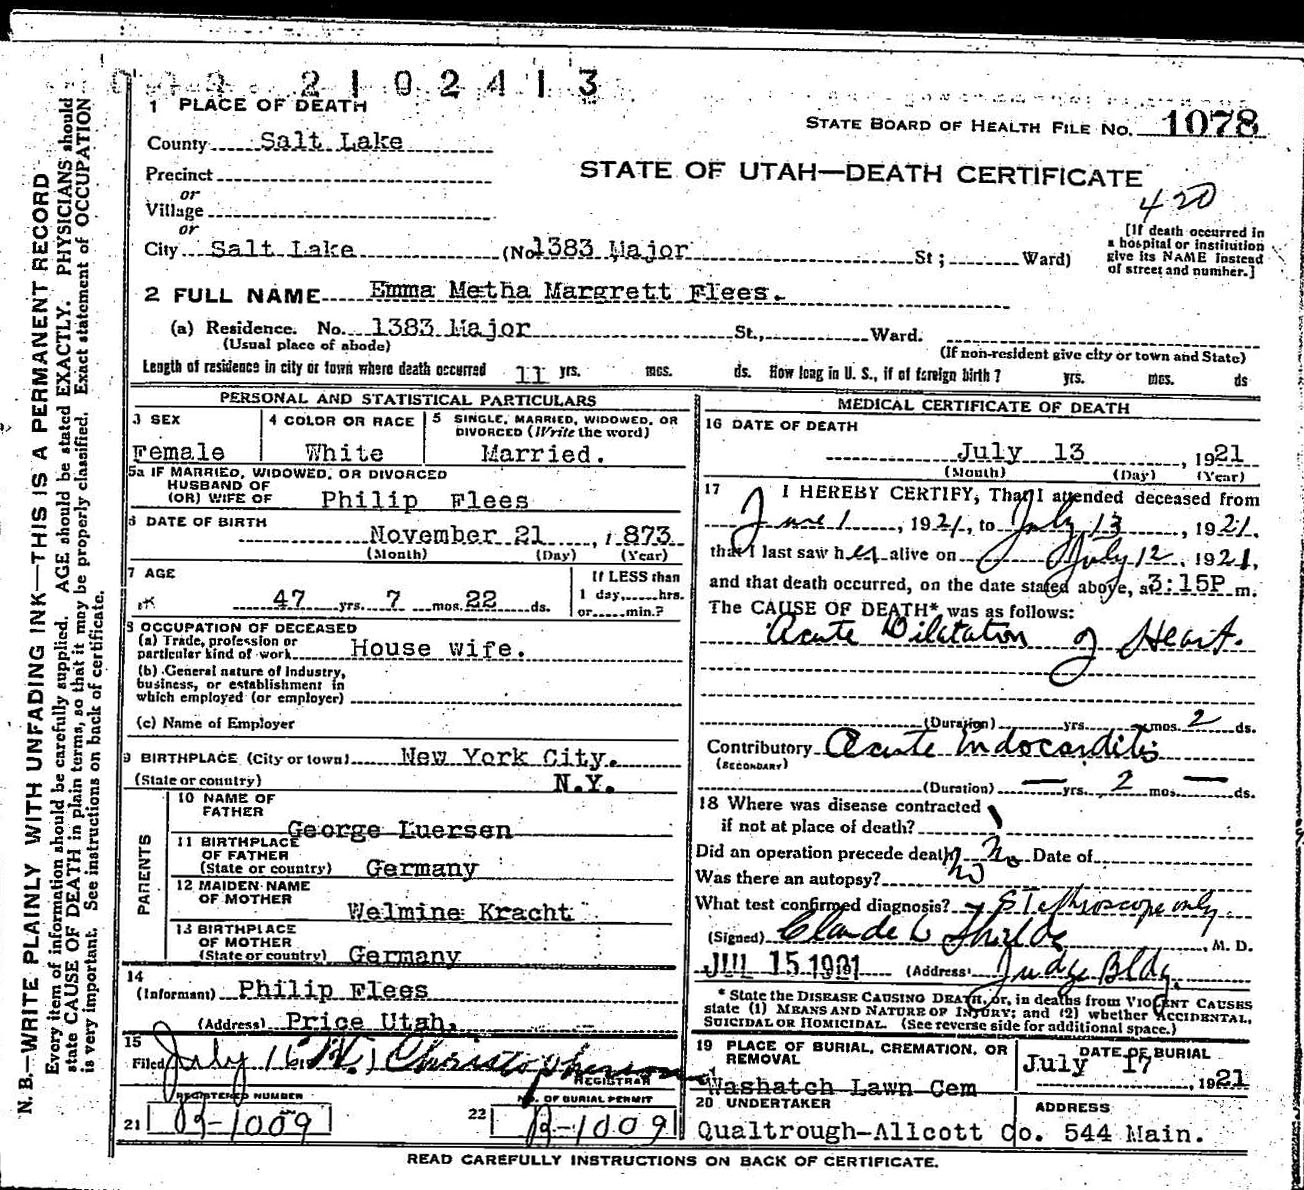 2102413
1 PLACE OF DEATH
STATE BOARD OF HEALTH FILE NO. 1078
County Salt Lake
STATE OF UTAH—DEATH CERTIFICATE
Precinct
420
or
Village
or
City Salt Lake (No 1383 Major St; Ward)
[If death occurred in
a hospital or institution
give its NAME instead
of street and number.]
2 FULL NAME Emma Metha Margrett Flees.
(a) Residence. No. 1383 Major St., Ward.
(Usual place of abode)
(If non-resident give city or town and State)
Length of residence in city or town where death occurred 11 yrs. mos. ds. How long in U. S., if of foreign birth? yrs. mos. ds
PERSONAL AND STATISTICAL PARTICULARS
3 SEX
Female
4 COLOR OR RACE
White
5 SINGLE, MARRIED, WIDOWED, OR
DIVORCED (Write the word)
Married.
5a IF MARRIED, WIDOWED, OR DIVORCED
HUSBAND OF
(OR) WIFE OF Philip Flees
6 DATE OF BIRTH
November 21 , 1873
(Month) (Day) (Year)
7 AGE
47 yrs. 7 mos. 22 ds.
If LESS than
1 day, hrs.
or min.?
8 OCCUPATION OF DECEASED
(a) Trade, profession or
particular kind of work House wife.
(b) General nature of industry,
business, or establishment in
which employed (or employer)
(c) Name of Employer
9 BIRTHPLACE (City or town) New York City.
(State or country) N.Y.
PARENTS
10 NAME OF
FATHER
George Luersen
11 BIRTHPLACE
OF FATHER
(State or country) Germany
12 MAIDEN NAME
OF MOTHER
Welmine Kracht
13 BIRTHPLACE
OF MOTHER
(State or country) Germany
14
(Informant) Philip Flees
(Address) Price Utah.
15
Filed July 16 Christopherson
REGISTRAR
REGISTERED NUMBER
21 B-1009
NO. OF BURIAL PERMIT
22 B-1009
MEDICAL CERTIFICATE OF DEATH
16 DATE OF DEATH
July 13 , 1921
(Month) (Day) (Year)
17 I HEREBY CERTIFY, That I attended deceased from
June 1 , 1921, to July 13 , 1921.
that I last saw her alive on July 12 , 1921,
and that death occurred, on the date stated above, at 3:15P m.
The CAUSE OF DEATH* was as follows:
Acute Dilatation of Heart.
(Duration) yrs. mos. 2 ds.
Contributory Acute Indocarditis
(SECONDARY)
(Duration) — yrs. 2 mos. — ds.
18 Where was disease contracted
if not at place of death?
Did an operation precede death? No Date of
Was there an autopsy? no
What test confirmed diagnosis? Stethroscope only
(Signed) Claude L Shields M. D.
JUL 15 1921 (Address) Judge Bldg.
* State the DISEASE CAUSING DEATH, or, in deaths from VIOLENT CAUSES
state (1) MEANS AND NATURE OF INJURY; and (2) whether ACCIDENTAL,
SUICIDAL OR HOMICIDAL. (See reverse side for additional space.)
19 PLACE OF BURIAL, CREMATION, OR
REMOVAL
Washatch Lawn Cem
DATE OF BURIAL
July 17 , 1921
20 UNDERTAKER
Qualtrough-Allcott Co.
ADDRESS
544 Main.
READ CAREFULLY INSTRUCTIONS ON BACK OF CERTIFICATE.
N. B.—WRITE PLAINLY WITH UNFADING INK—THIS IS A PERMANENT RECORD
Every item of information should be carefully supplied. AGE should be stated EXACTLY. PHYSICIANS should
state CAUSE OF DEATH in plain terms, so that it may be properly classified. Exact statement of OCCUPATION
is very important. See instructions on back of certificate.